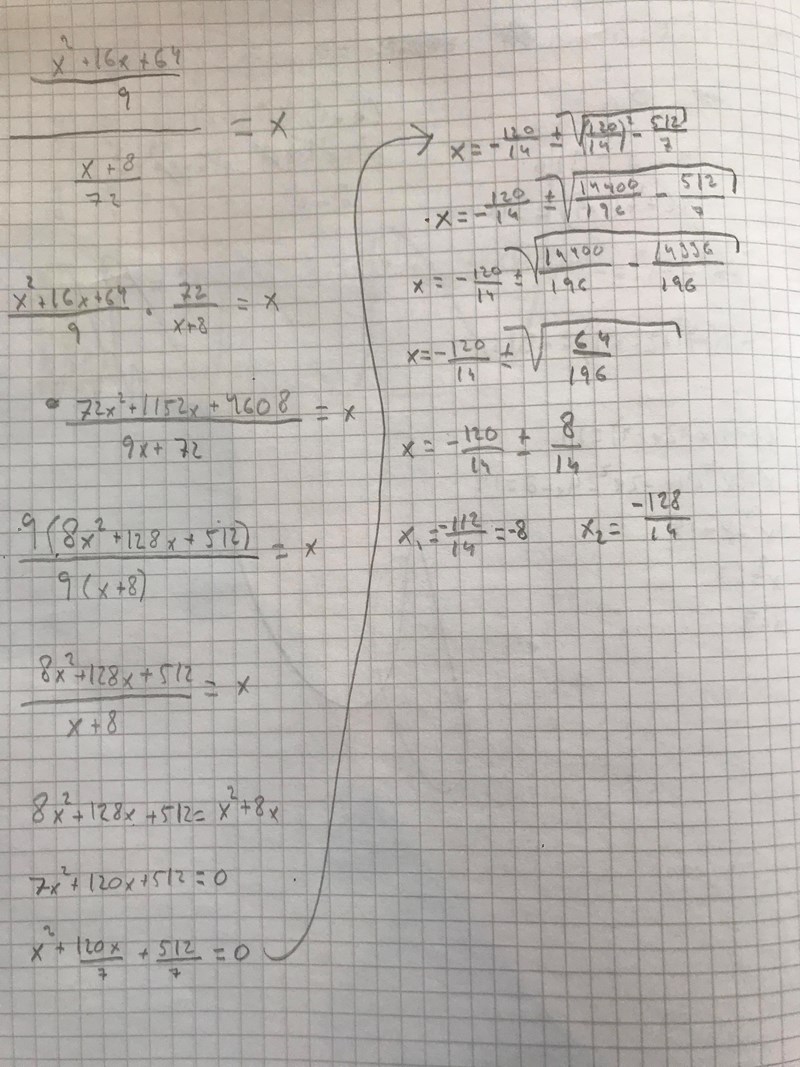 x² + 16x + 64
9
= x
x + 8
72
x² + 16x + 64 / 9 · 72 / x+8 = x
72x² + 1152x + 4608 / 9x + 72 = x
9(8x² + 128x + 512) / 9(x+8) = x
8x² + 128x + 512 / x + 8 = x
8x² + 128x + 512 = x² + 8x
7x² + 120x + 512 = 0
x² + 120x/7 + 512/7 = 0
x = -120/14 ± √((120/14)² - 512/7)
x = -120/14 ± √(14400/196 - 512/7)
x = -120/14 ± √(14400/196 - 14336/196)
x = -120/14 ± √(64/196)
x = -120/14 ± 8/14
x₁ = -112/14 = -8 x₂ = -128/14